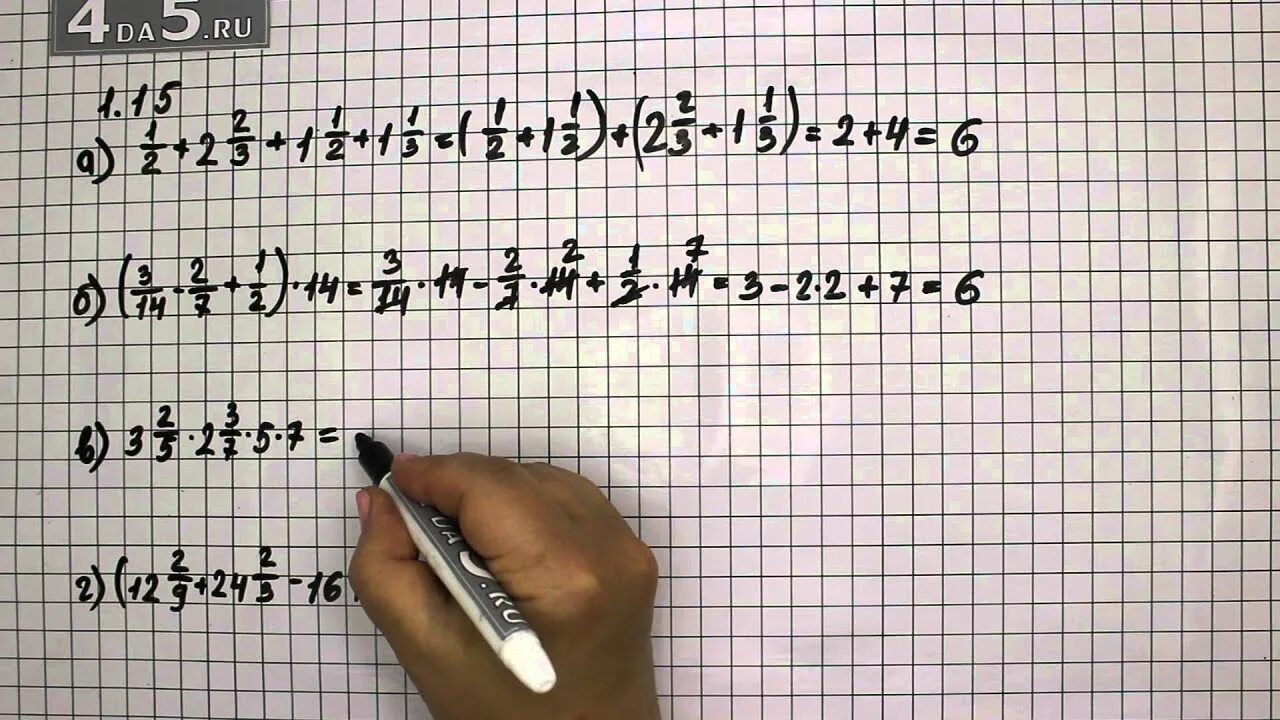 4DA5.RU
1.15
а) 1/2 + 2 2/3 + 1 1/2 + 1 1/3 = (1/2 + 1 1/2) + (2 2/3 + 1 1/3) = 2 + 4 = 6
б) (3/14 - 2/7 + 1/2) · 14 = 3/14 · 14 - 2/7 · 14 2 + 1/2 · 14 7 = 3 - 2 · 2 + 7 = 6
в) 3 2/5 · 2 3/7 · 5 · 7 =
г) (12 2/9 + 24 2/3 - 16
DA5.RU